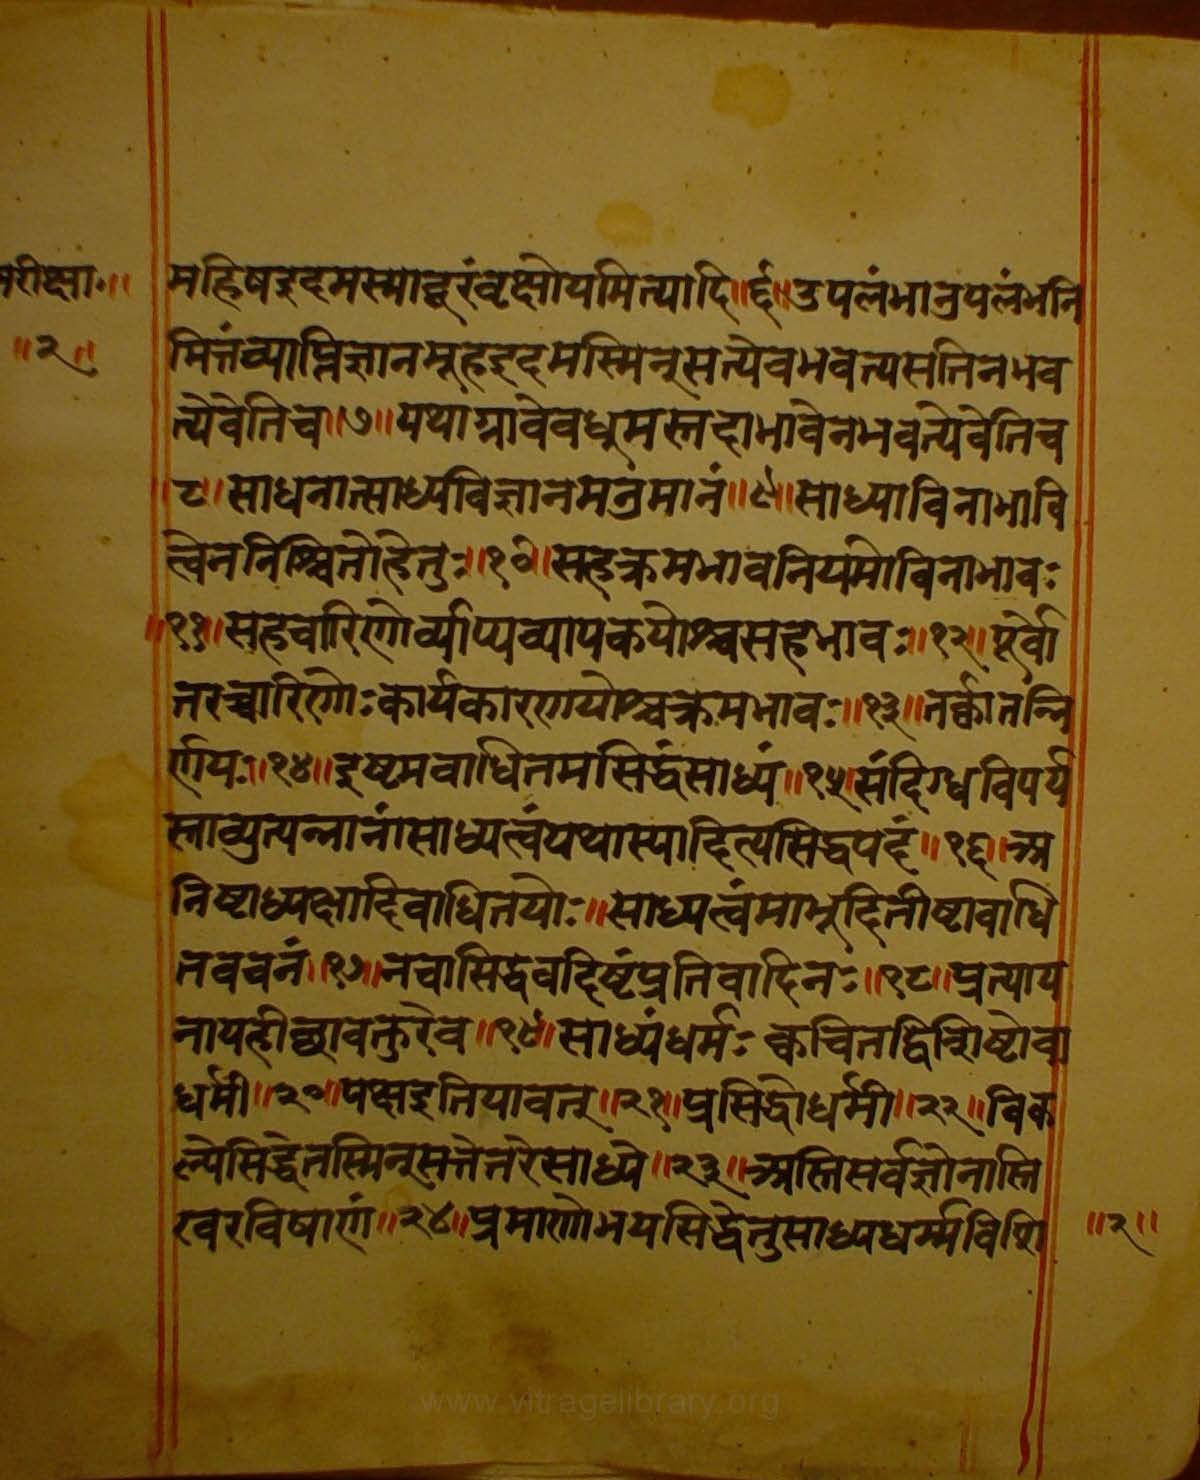 परीक्षा॰॥ महिषइदमस्माद्दूरंवृक्षोयमित्यादि॥६॥उपलंभानुपलंभनि
॥२॥ मित्तंव्याप्तिज्ञानमूहइदमस्मिन्सत्येवभवत्यसतिनभव
त्येवेतिच॥७॥यथाग्नावेवधूमस्तदाभावेनभवत्येवेतिच
॥८॥साधनात्साध्यविज्ञानमनुमानं॥९॥साध्याविनाभावि
त्वेननिश्चितोहेतुः॥१०॥सहक्रमभावनियमोविनाभावः
॥११॥सहचारिणोर्व्याप्यव्यापकयोश्चसहभावः॥१२॥पूर्वो
त्तरच्चारिणोःकार्यकारणयोश्चक्रमभावः॥१३॥तर्क्कात्तन्नि
र्णयः॥१४॥इष्टमवाधितमसिद्धंसाध्यं॥१५॥संदिग्धविपर्य
स्ताव्युत्पन्नानांसाध्यत्वंयथास्यादित्यसिद्धपदं॥१६॥अ
निष्टाध्यक्षादिवाधितयोः॥साध्यत्वंमाभूदितीष्टावाधि
तवचनं॥१७॥नचासिद्धवदिष्टंप्रतिवादिनः॥१८॥प्रत्याय
नायहीछावक्तुरेव॥१९॥साध्यंधर्मःक्वचितद्विशिष्टोवा
धर्मी॥२०॥पक्षइतियावत्॥२१॥प्रसिद्धोधर्मी॥२२॥विक
ल्पेसिद्धेतस्मिन्सत्तेतरेसाध्ये॥२३॥अस्तिसर्वज्ञोनास्ति
खरविषाणं॥२४॥प्रमाणोभयसिद्धेतुसाध्यधर्म्मविशि ॥२॥
www.vitragelibrary.org